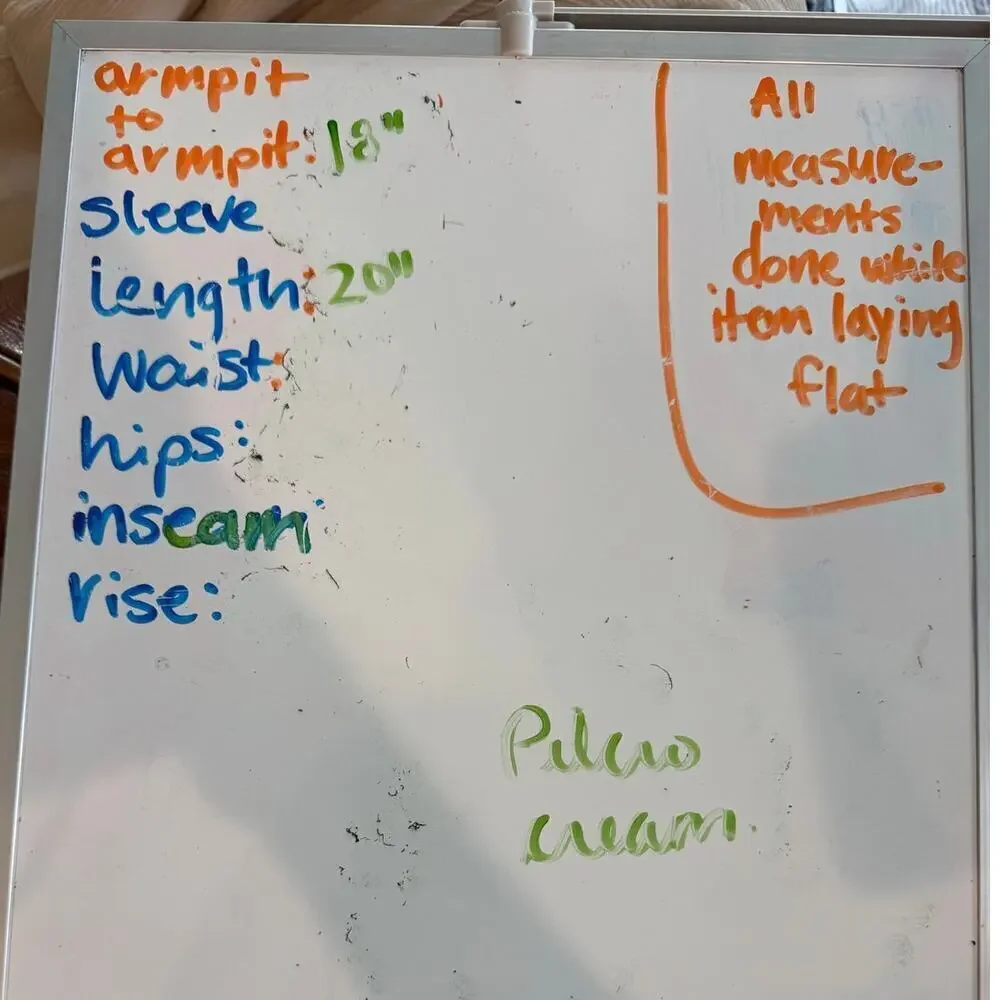 armpit
to
armpit: 18"
sleeve
length: 20"
Waist:
hips:
inseam:
rise:
All
measure-
ments
done while
item laying
flat
Pilcro
cream